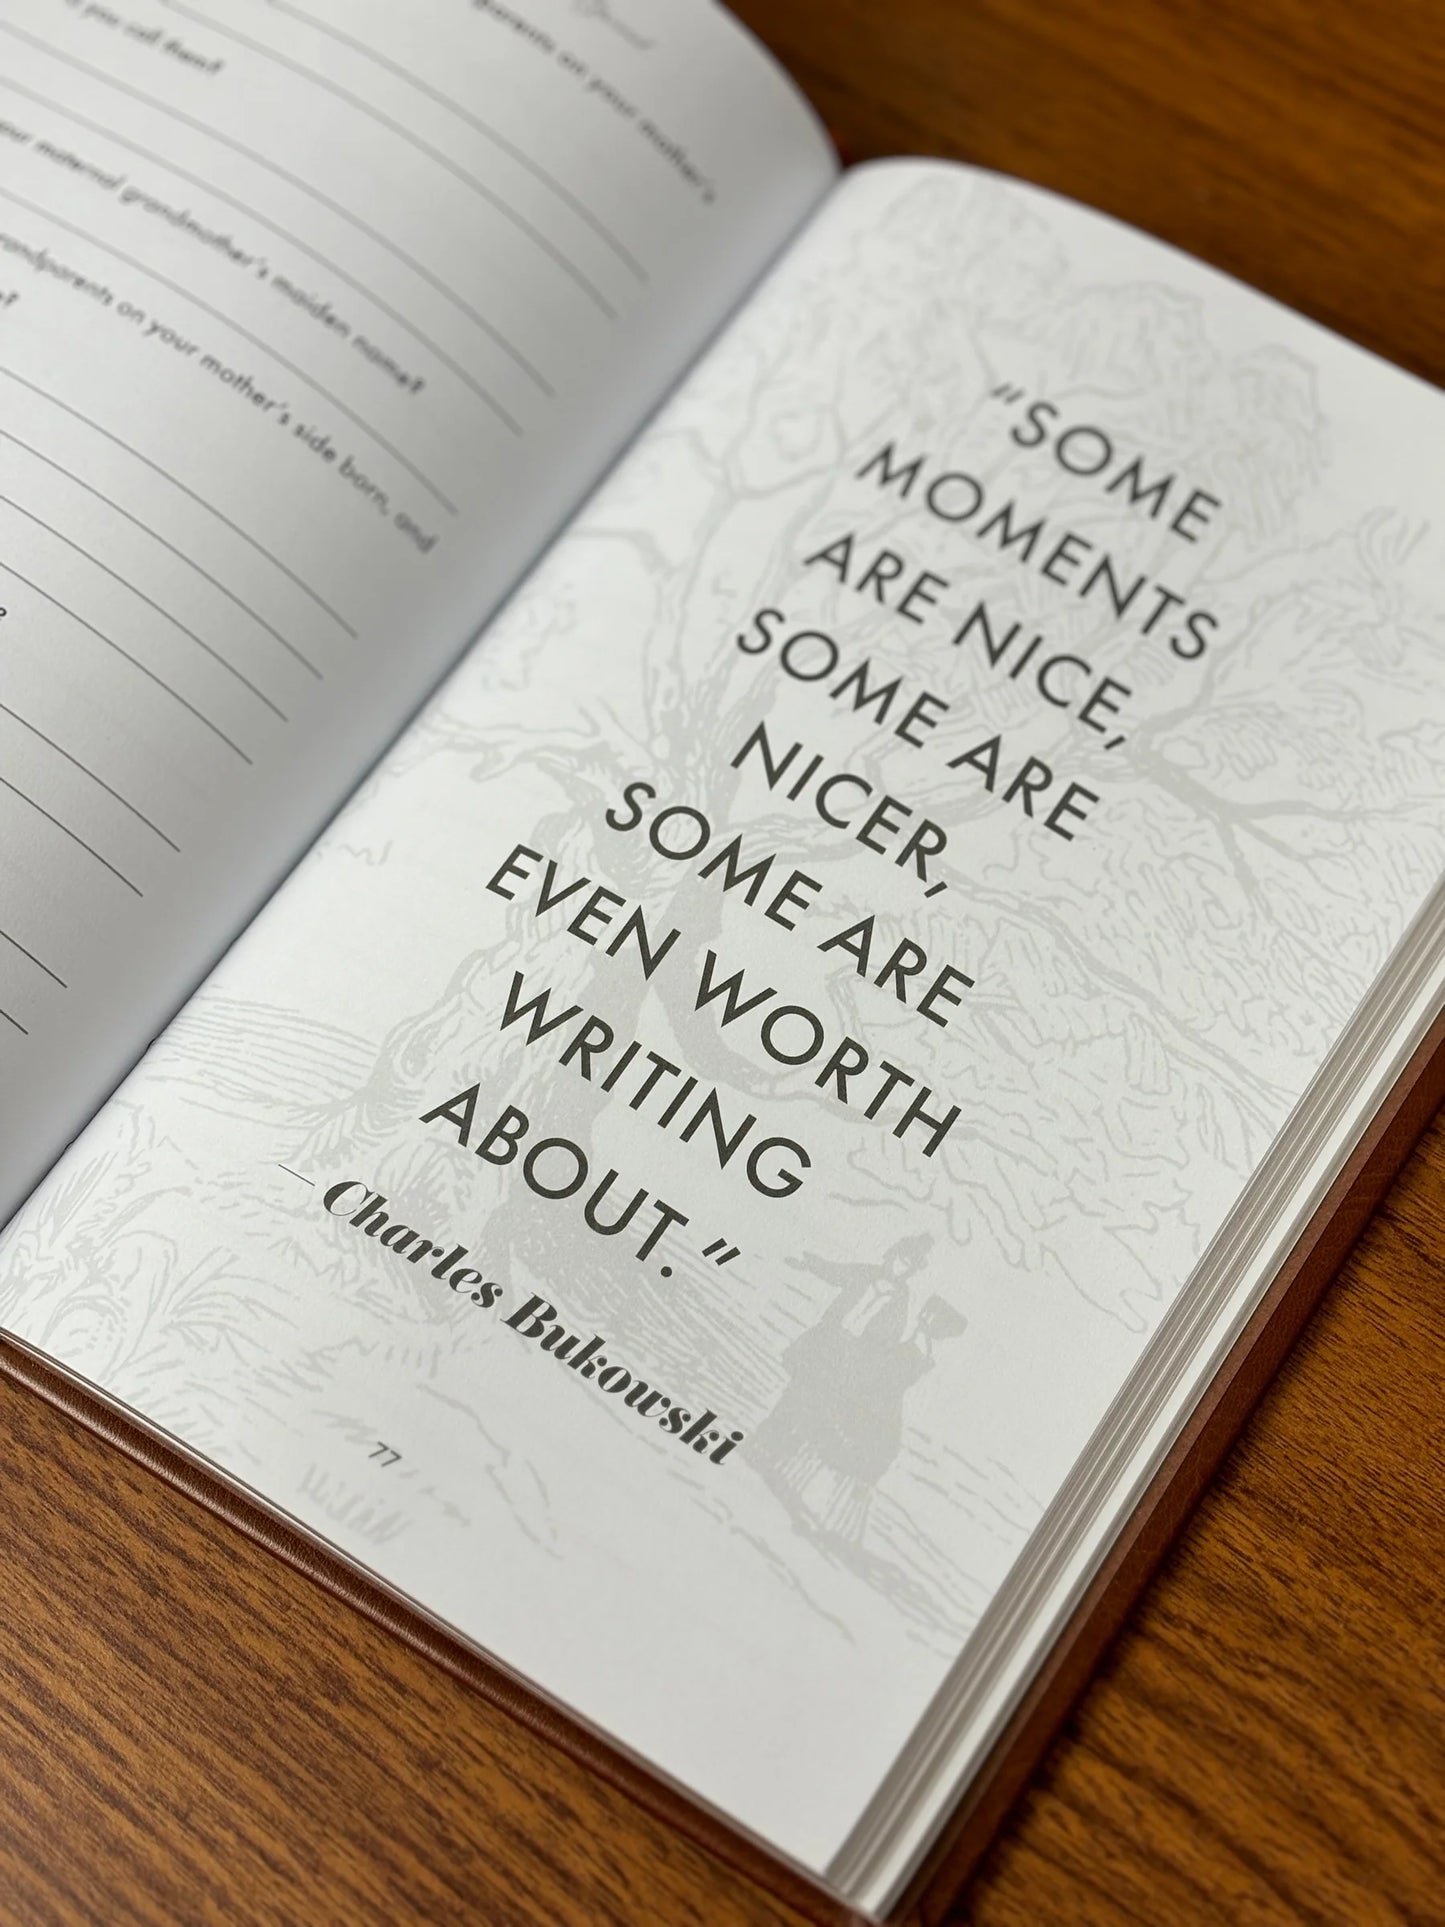 parents on your mother's
you call them?
your maternal grandmother's maiden name?
grandparents on your mother's side born, and
?
"SOME
MOMENTS
ARE NICE,
SOME ARE
NICER,
SOME ARE
EVEN WORTH
WRITING
ABOUT."
— Charles Bukowski
77